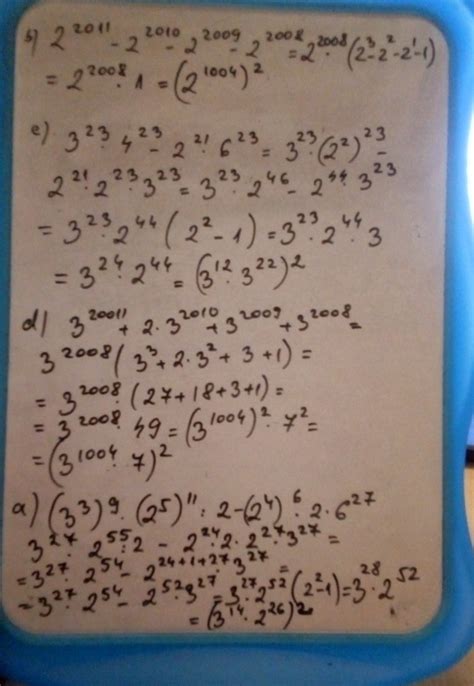 b) 2^2011 - 2^2010 - 2^2009 - 2^2008 = 2^2008 (2^3 - 2^2 - 2^1 - 1)
= 2^2008 · 1 = (2^1004)^2
c) 3^23 · 4^23 - 2^21 · 6^23 = 3^23 · (2^2)^23 -
2^21 · 2^23 · 3^23 = 3^23 · 2^46 - 2^44 · 3^23
= 3^23 · 2^44 (2^2 - 1) = 3^23 · 2^44 · 3
= 3^24 · 2^44 = (3^12 · 3^22)^2
d) 3^20011 + 2 · 3^2010 + 3^2009 + 3^2008 =
3^2008 (3^3 + 2 · 3^2 + 3 + 1) =
= 3^2008 · (27 + 18 + 3 + 1) =
= 3^2008 · 49 = (3^1004)^2 · 7^2 =
= (3^1004 · 7)^2
a) (3^3)^9 · (2^5)^11 : 2 - (2^4)^6 · 2 · 6^27
3^27 · 2^55 : 2 - 2^24 · 2 · 2^27 · 3^27 =
= 3^27 · 2^54 - 2^24+1+27 · 3^27 =
= 3^27 · 2^54 - 2^52 · 3^27 = 3^27 · 2^52 (2^2 - 1) = 3^28 · 2^52
= (3^14 · 2^26)^2